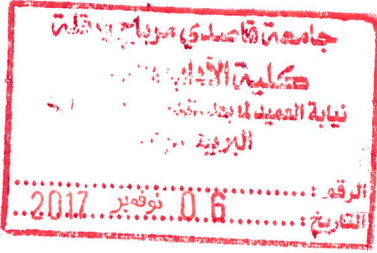 جامعة قاصدي مرباح ورقلة
كلية الآداب
نيابة العميد لما بعد
البريد
الرقم :
التاريخ : 06 نوفمبر 2017